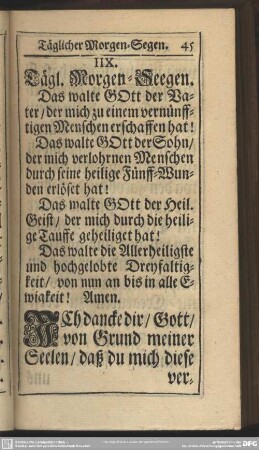 Täglicher Morgen-Segen. 45
IIX.
Tägl. Morgen-Seegen.
Das walte GOtt der Va-
ter/ der mich zu einem vernünff-
tigen Menschen erschaffen hat!
Das walte GOtt der Sohn/
der mich verlohrnen Menschen
durch seine heilige Fünff-Wun-
den erlöset hat!
Das walte GOtt der Heil.
Geist/ der mich durch die heili-
ge Tauffe geheiliget hat!
Das walte die Allerheiligste
und hochgelobte Dreyfaltig-
keit/ von nun an bis in alle E-
wigkeit! Amen.
ACh dancke dir/ Gott/
von Grund meiner
Seelen/ daß du mich diese
ver-
DFG